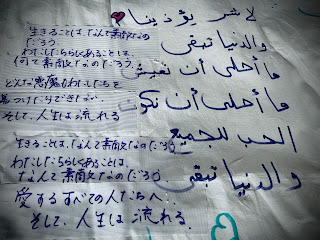 生きることは、なんて素敵なの
だろう。
わたしたちらしくあることは、
何て素敵なのだろう。
どんな悪魔もわたしたちを
傷つけたりできない
そして、人生は流れる
生きることは、なんて素敵なのだろう
わたしたちらしくあることは、
なんて素敵なのだろう
愛するすべての人たちへ…
そして、人生は流れる.
لا شر يؤذينا
والدنيا تبقى
ما أحلى أن نعيش
ما أحلى أن نكون
الحب للجميع
والدنيا تبقى